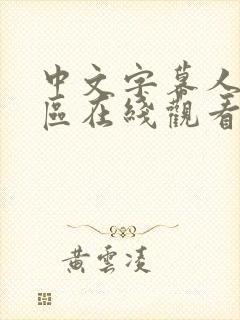 中文字幕人
區在綫觀看
黃雲凌